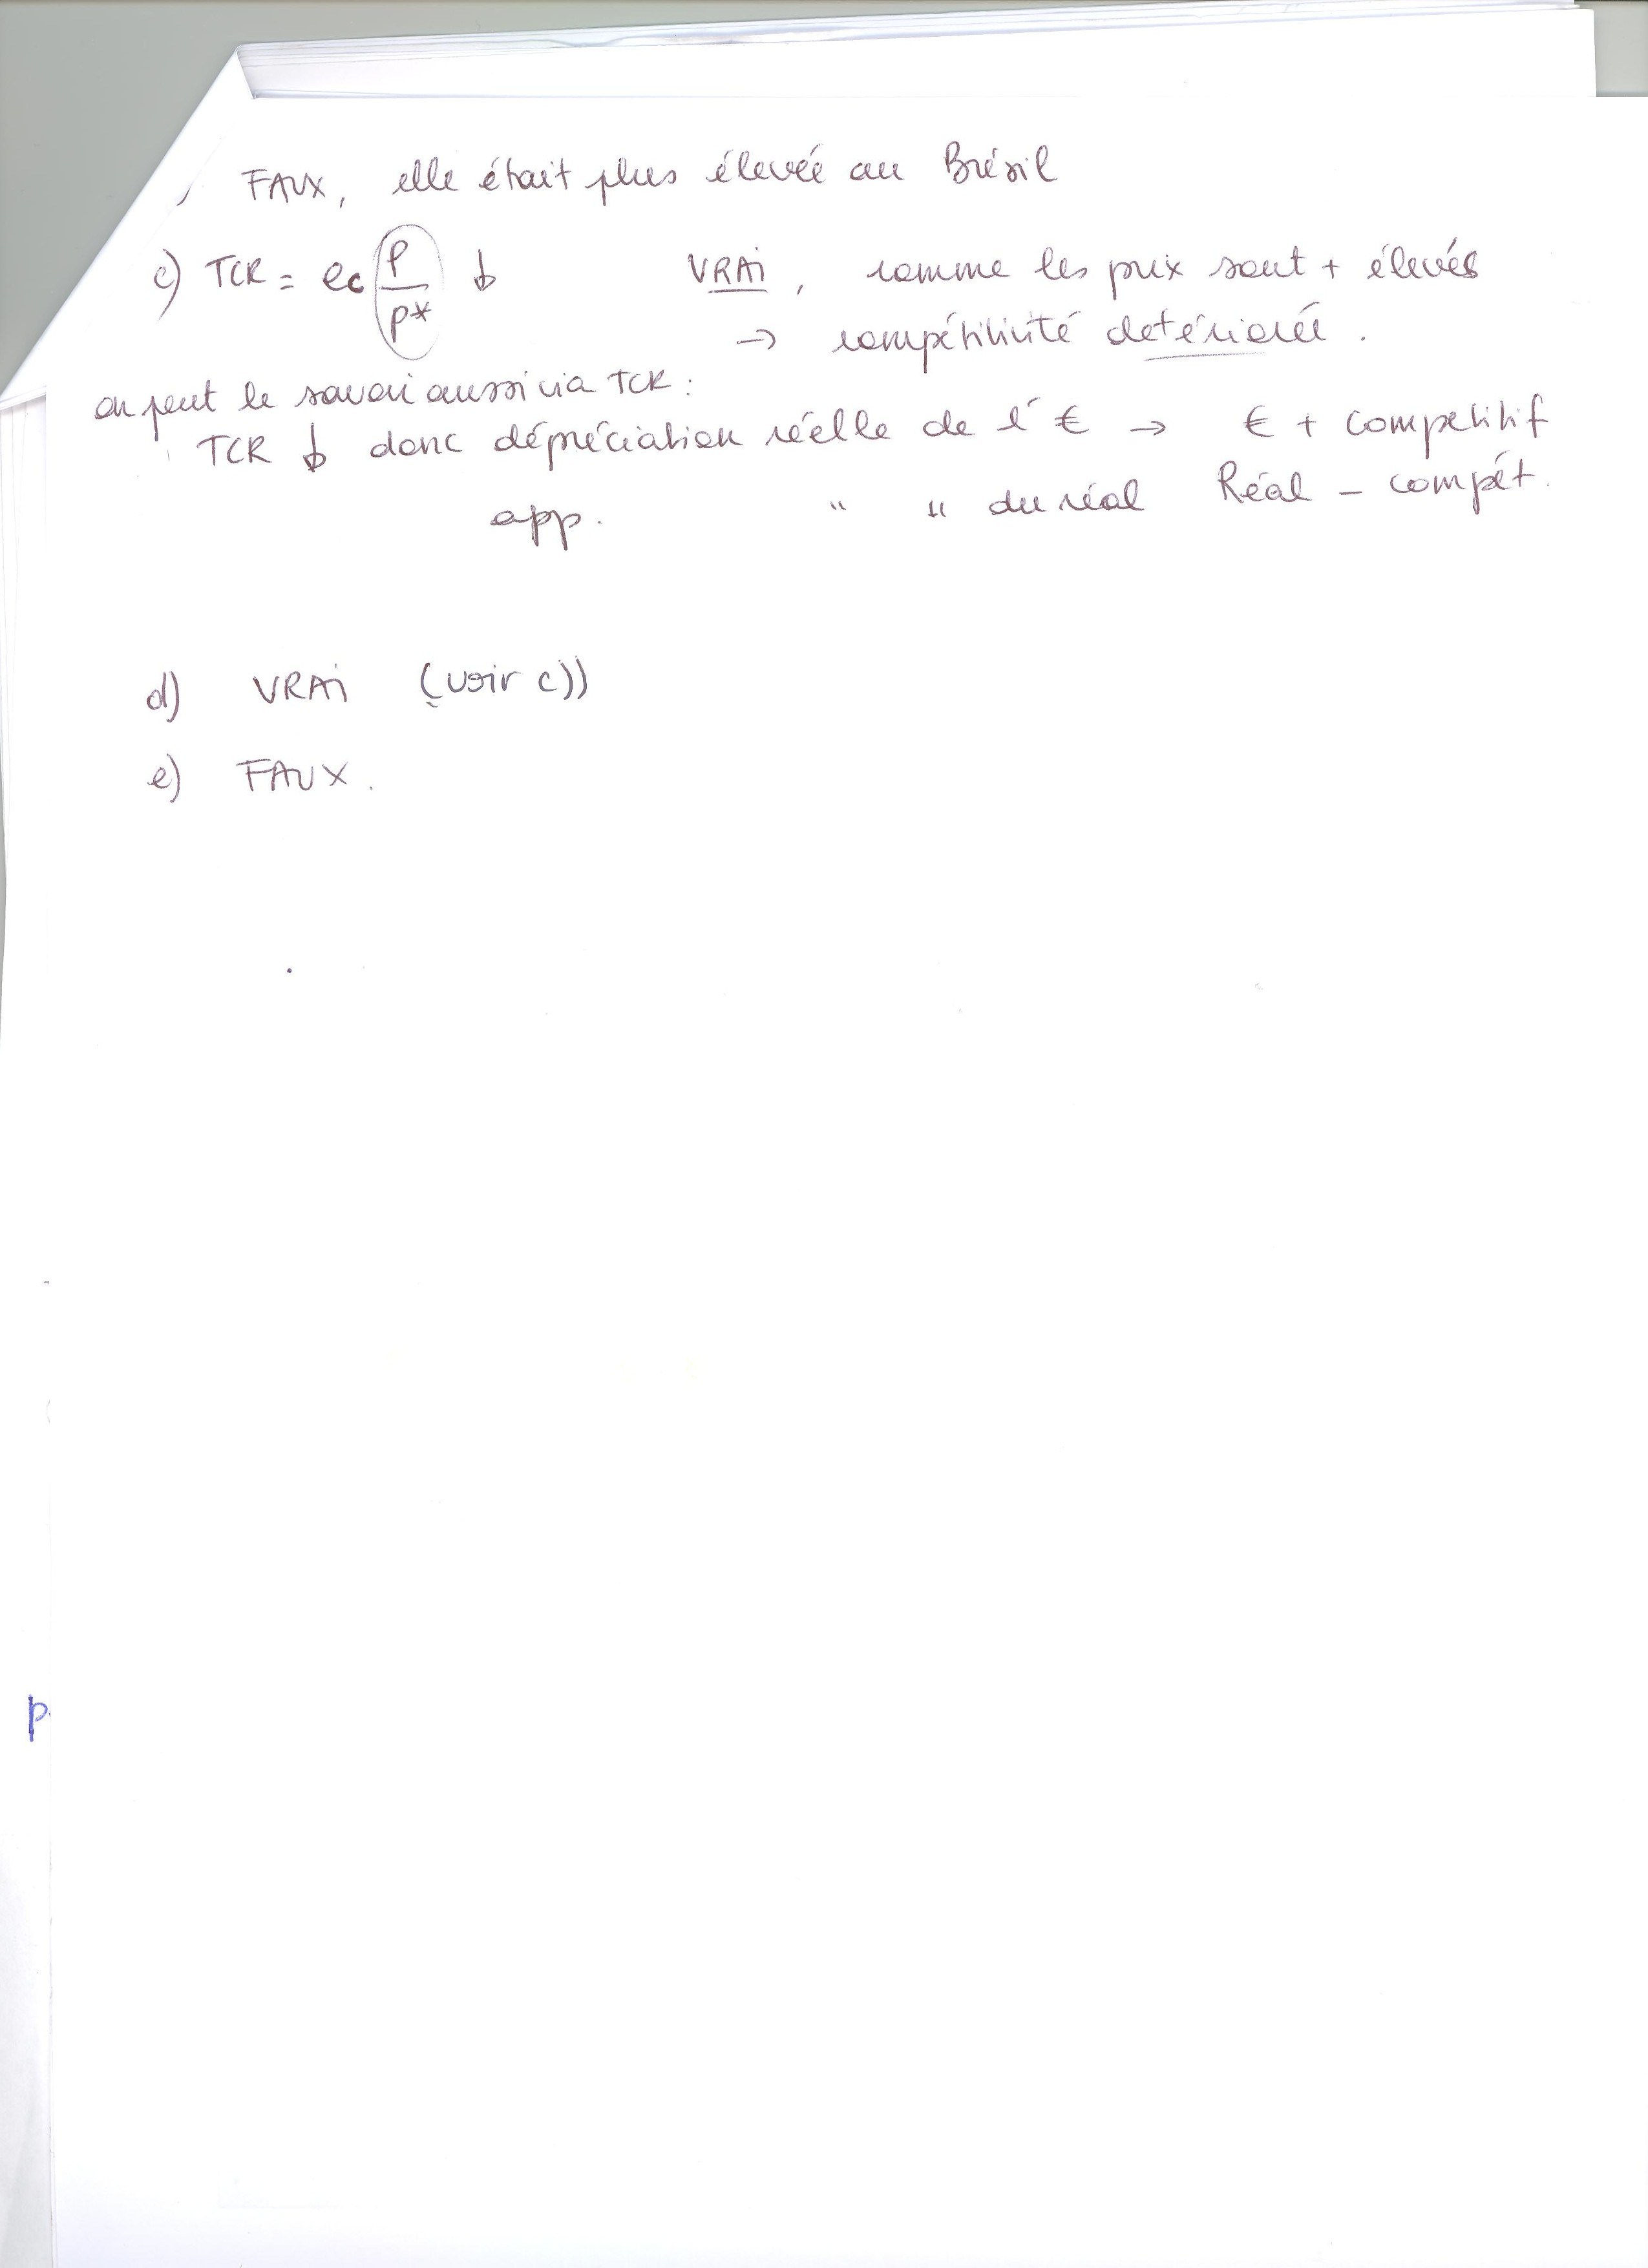 FAUX, elle était plus élevée au Brésil
c) TCR = ec P/P* ↓ VRAi, comme les prix sont + élevés
→ compétitivité detériorée.
on peut le savoir aussi via TCR :
TCR ↓ donc dépréciation réelle de l'€ → € + competitif
app. " " du réal Réal - compét.
d) VRAi (voir c))
e) FAUX.
p